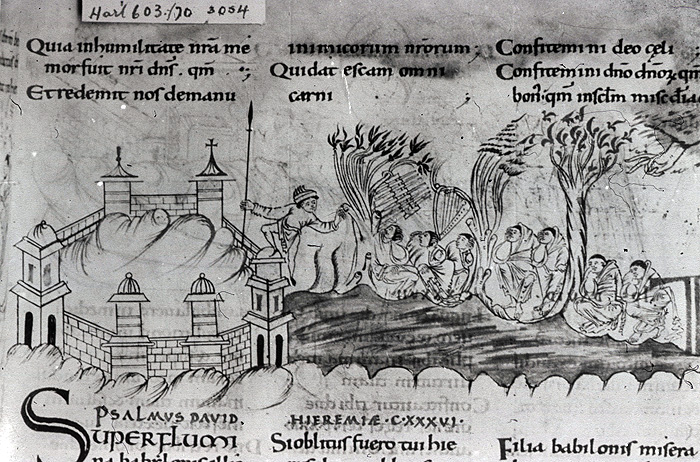 Harl 603./70 3054
Quia inhumilitate nr̄a me
mor fuit nr̄i dn̄s. qm̄
Et redemit nos demanu
inimicorum nr̄orum;
Qui dat escam omni
carni
Confitemini deo celi
Confitemini dn̄o dn̄oꝝ qm̄
bon: qm̄ insclm misc̄dia
PSALMUS DAVID.
SUPERFLUMI
na babilonis illi
HIEREMIAE·C·XXXVI·
Si oblitus fuero tui hie
Filia babilonis misera